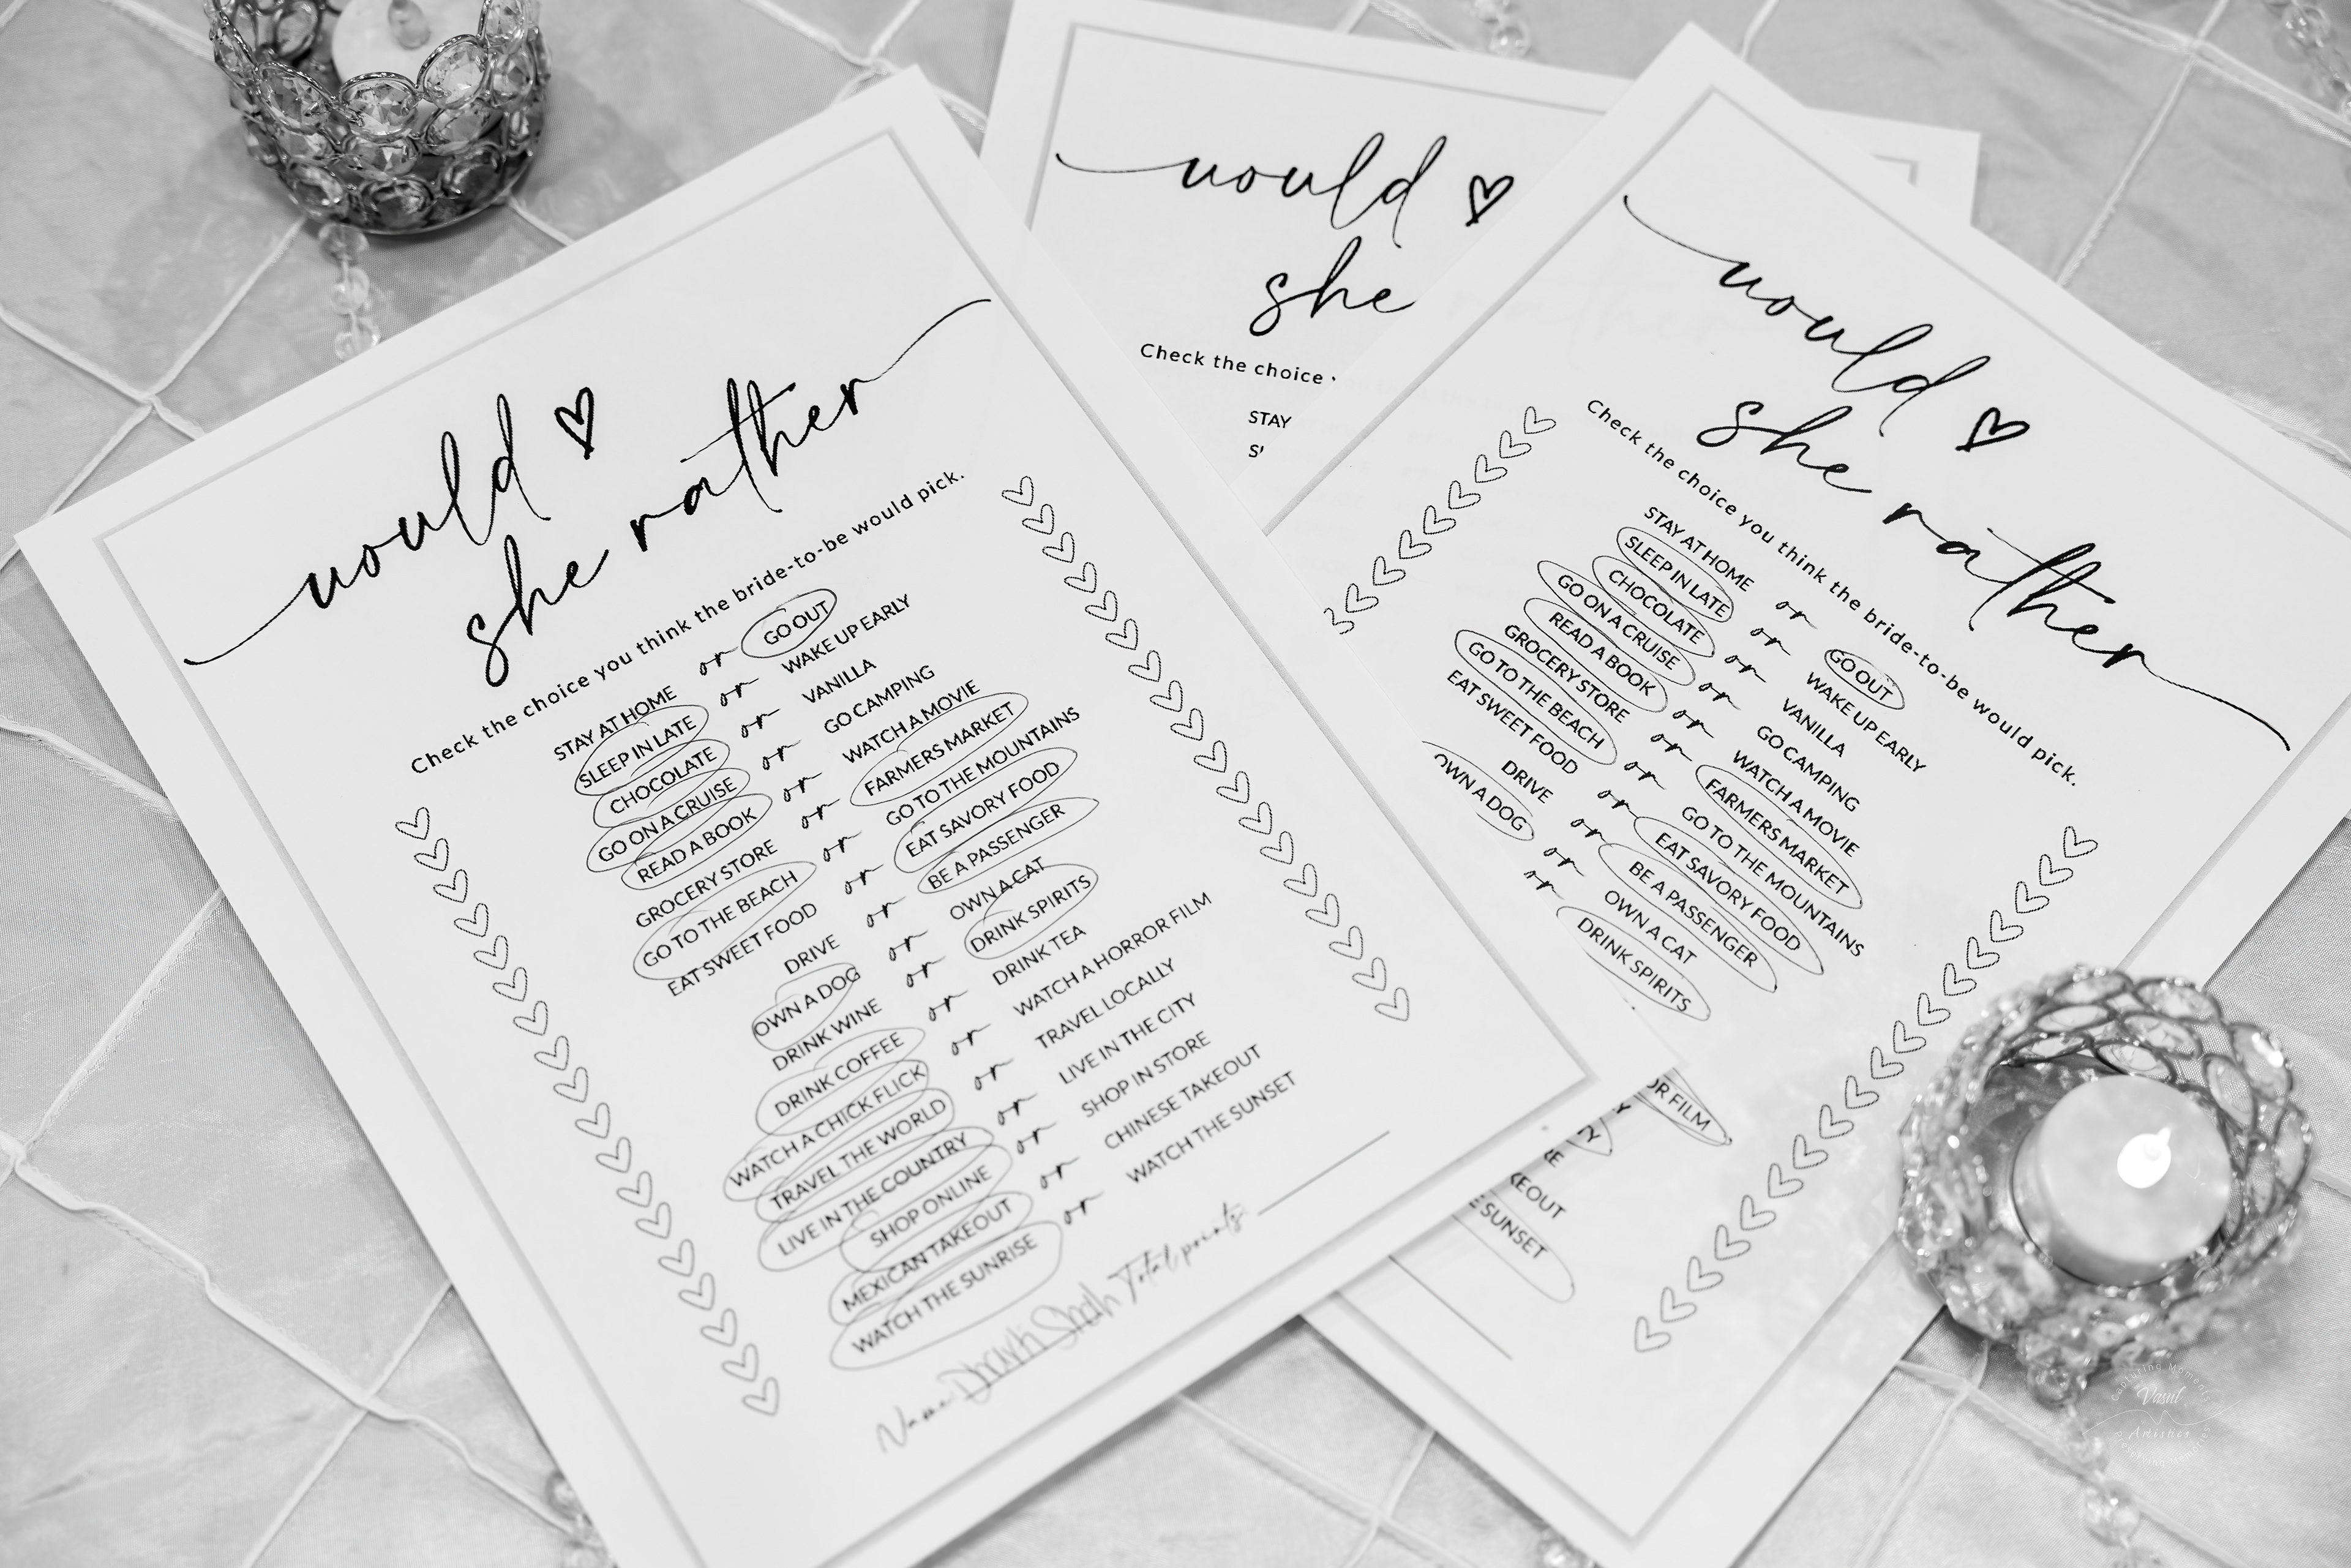 would
she rather
Check the choice you think the bride-to-be would pick.
STAY AT HOME or GO OUT
SLEEP IN LATE or WAKE UP EARLY
CHOCOLATE or VANILLA
GO ON A CRUISE or GO CAMPING
READ A BOOK or WATCH A MOVIE
GROCERY STORE or FARMERS MARKET
GO TO THE BEACH or GO TO THE MOUNTAINS
EAT SWEET FOOD or EAT SAVORY FOOD
DRIVE or BE A PASSENGER
OWN A DOG or OWN A CAT
DRINK WINE or DRINK SPIRITS
DRINK COFFEE or DRINK TEA
WATCH A CHICK FLICK or WATCH A HORROR FILM
TRAVEL THE WORLD or TRAVEL LOCALLY
LIVE IN THE COUNTRY or LIVE IN THE CITY
SHOP ONLINE or SHOP IN STORE
MEXICAN TAKEOUT or CHINESE TAKEOUT
WATCH THE SUNRISE or WATCH THE SUNSET
Name Shah Total points
would
she
Check the choice
STAY
would
she rather
Check the choice you think the bride-to-be would pick.
STAY AT HOME or GO OUT
SLEEP IN LATE or WAKE UP EARLY
CHOCOLATE or VANILLA
GO ON A CRUISE or GO CAMPING
READ A BOOK or WATCH A MOVIE
GROCERY STORE or FARMERS MARKET
GO TO THE BEACH or GO TO THE MOUNTAINS
EAT SWEET FOOD or EAT SAVORY FOOD
DRIVE or BE A PASSENGER
OWN A DOG or OWN A CAT
or DRINK SPIRITS
OR FILM
Y
KEOUT
SUNSET
Capturing Moments
Vasul
Artistics